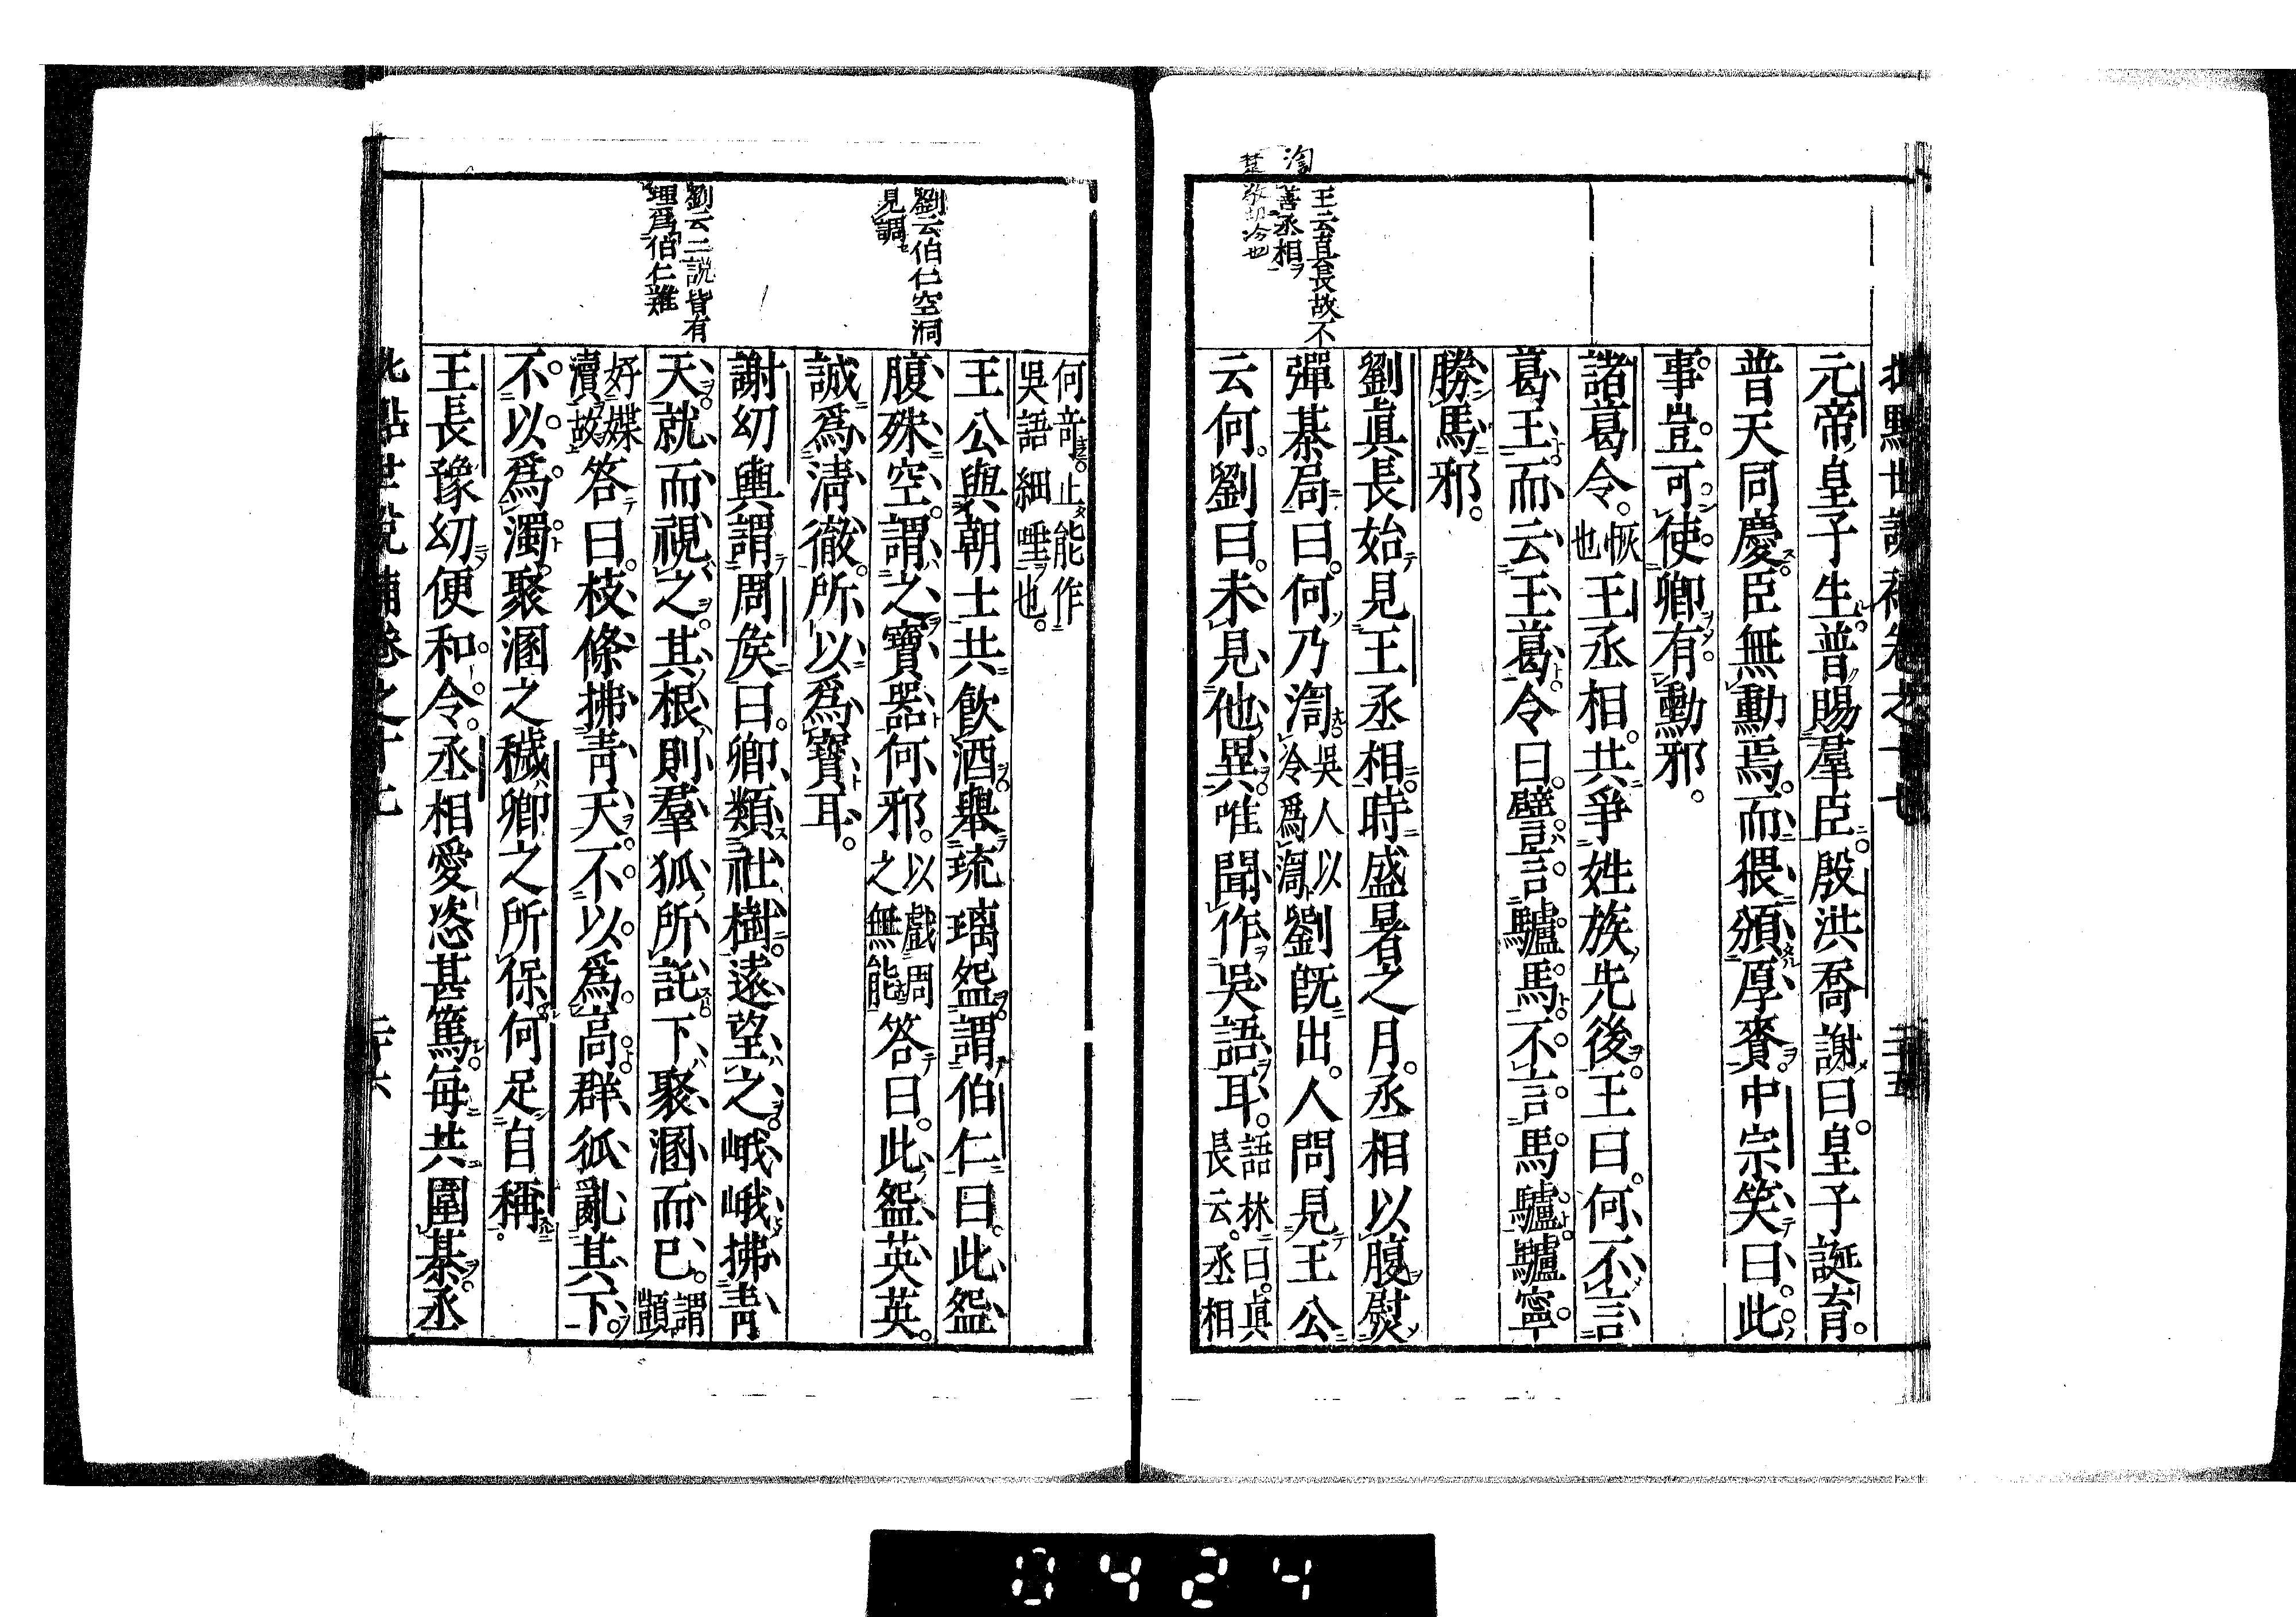 世說補卷之十七
元帝皇子生。普賜羣臣。殷洪喬謝曰。皇子誕育。
普天同慶。臣無勳焉。而猥頒厚賚。中宗笑曰。此
事豈可使卿有勳邪。
諸葛令。恢也王丞相。共爭姓族先後。王曰。何不言
葛王。而云王葛。令曰。譬言驢馬。不言馬驢。驢寧
勝馬邪。
劉眞長始見王丞相。時盛暑之月。丞相以腹熨
彈棊局曰。何乃渹。吳人以冷爲渹劉既出。人問見王公
云何。劉曰。未見他異。唯聞作吳語耳。語林曰。眞長云。丞相
王云眞長故不
善丞相
渹
何奇。止能作
吳語細唾也。
王公與朝士共飲酒。舉琉璃盌。謂伯仁曰。此盌
腹殊空。謂之寶器何邪。以戲周之無能答曰。此盌英英。
誠爲淸徹。所以爲寶耳。
謝幼輿謂周矦曰。卿類社樹。遠望之。峨峨拂靑
天。就而視之。其根則羣狐所託。下聚溷而已。謂顗
好媟瀆故答曰。枝條拂靑天。不以爲高。群狐亂其下。
不以爲濁。聚溷之穢。卿之所保。何足自稱。
王長豫幼便和令。丞相愛恣甚篤。每共圍棊。丞
劉云伯仁空洞
見調
劉云二說皆有
理爲伯仁難
世說補卷之十七
二十六
0424